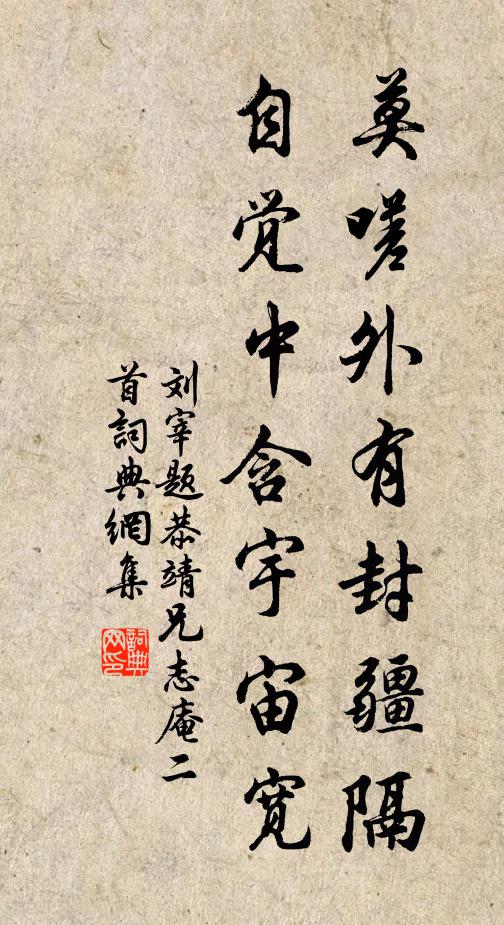 莫嗟外有封疆隔
自觉中含宇宙宽
刘宰题恭靖兄志庵二
首詞典網集
詞典
网印